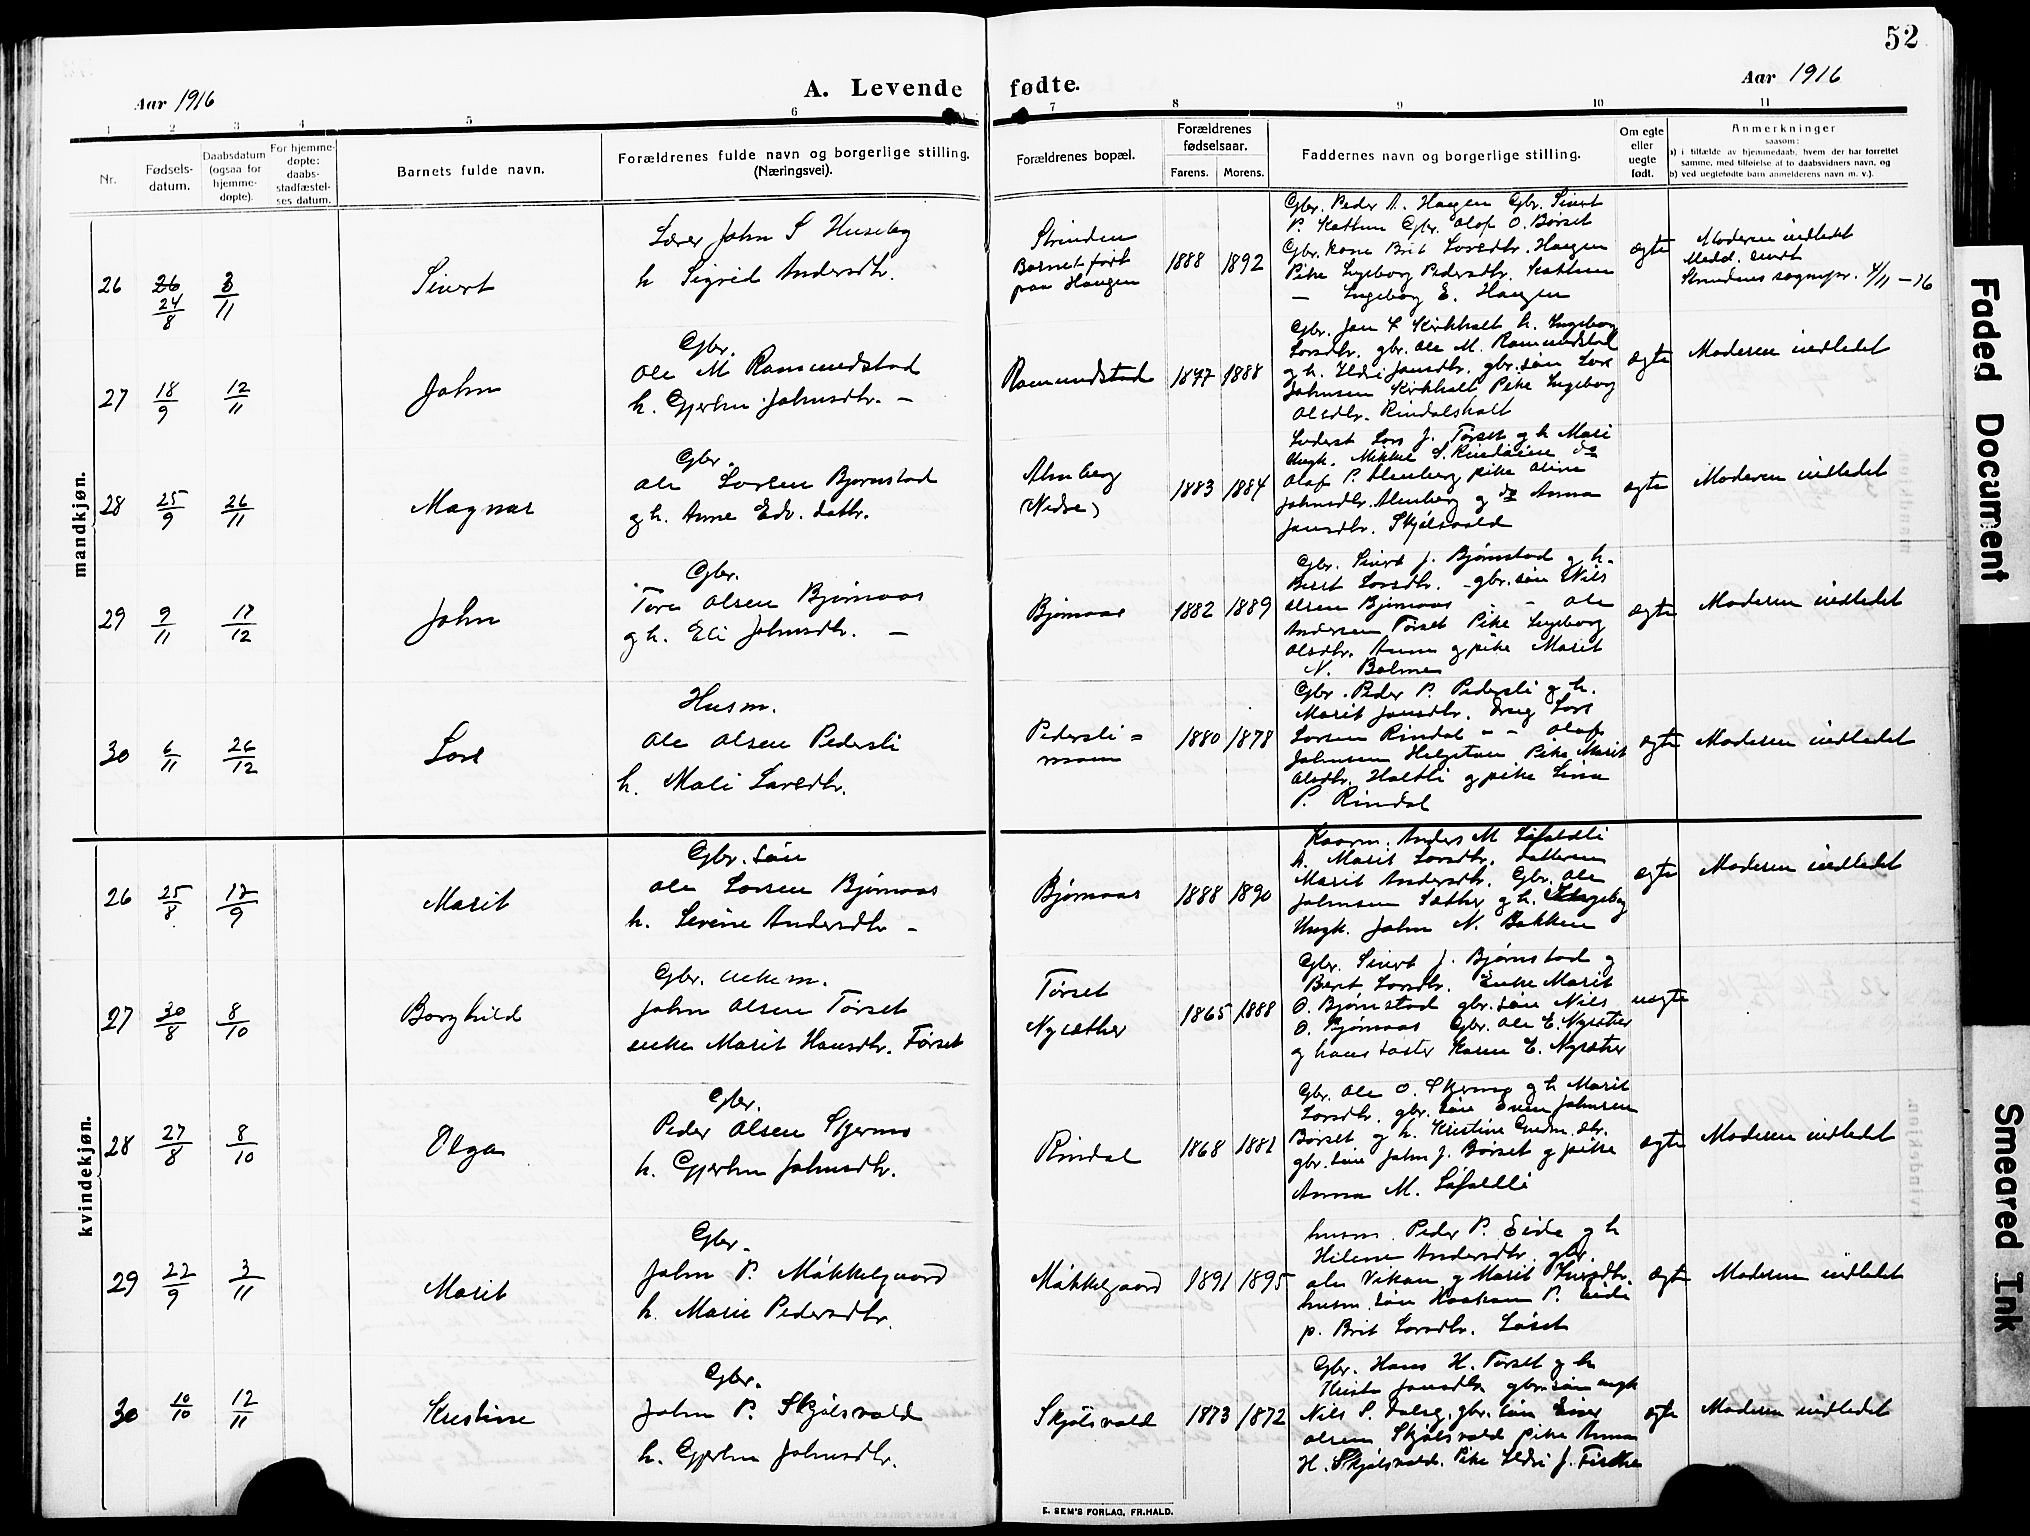 52
Aar 1916
A. Levende fødte.
Aar 1916
1 2 3 4 5 6 7 8 9 10 11
Nr.
Fødsels-
datum.
Daabsdatum
(ogsaa for
hjemme-
døpte).
For hjemme-
døpte:
daabs-
stadfæstel-
ses datum.
Barnets fulde navn.
Forældrenes fulde navn og borgerlige stilling.
(Næringsvei).
Forældrenes bopæl.
Forældrenes
fødselsaar.
Farens. Morens.
Faddernes navn og borgerlige stilling.
Om egte
eller
uegte
født.
Anmerkninger
saasom:
a) i tilfælde av hjemmedaab, hvem der har forrettet
samme, med tilføielse af to daabsvidners navn, og
b) ved uegtefødte barn anmelderens navn m. v.).
mandkjøn.
26
26
24/8
3/11
Sivert
Lærer John S Huseby
h Sigrid Andersdtr.
Strinden
Barnet født
paa Haugen
1888 1892
Gbr. Peder A. Haugen Gbr. Sivert
P. Kattum Gbr. Olaf O. Børset
Gbr. kone Brit Larsdtr. Haugen
Pike Ingeborg Pedersdtr. Kattum
— Ingeborg E. Haugen
ægte
Moderen indledet
Medd. sendt
Strindens sognepr. 4/11 – 16
27
18/9
12/11
John
Gbr.
Ole M Romundstad
h. Gjertru Johnsdtr. –
Romundstad
1877 1888
Gbr. Jon L Kirkholt h. Ingeborg
Larsdtr. gbr. Ole M. Romundstad
og h. Ildri Jonsdtr. gbr. søn Lars
Johnsen Kirkholt Pike Ingeborg
Olsdtr. Rindalsholt
ægte
Moderen indledet
28
25/9
26/11
Magnar
Gbr.
Ole Larsen Bjørnstad
og h. Anne Edv. datr.
Almberg
(Nedre)
1883 1884
Lars J. Tørset og h Mari
Ungk. Mikkel S. Rindalien do
Olaf P. Almberg pike Oline
Johnsdtr. Almberg og do Anna
Jonsdtr. Skjølsvold
ægte
Moderen indledet
29
9/11
17/12
John
Gbr.
Tore Olsen Bjørnaas
og h. Eli Johnsdtr. –
Bjørnaas
1882 1889
Gbr. Sivert J. Bjørnstad og h.
Berit Larsdtr. – gbr. søn Nils
Olsen Bjørnaas – Ole
Andersen Tørset Pike Ingeborg
Olsdtr. Aunm og pike Marit
N. Bolmen
ægte
Moderen indledet
30
6/11
26/12
Lars
Husm.
Ole Olsen Pedersli
h. Mali Larsdtr.
Pedersli =
moen
1880 1878
Gbr. Peder P. Pedersli og h.
Marit Jonsdtr. Lars
Larsen Rindal – – Olaf
Johnsen Helgetun Pike Marit
Olsdtr. Holtli og pike Lina
P. Rindal
ægte
Moderen indledet
kvindekjøn.
26
25/8
17/9
Marit
Gbr. søn
Ole Larsen Bjørnaas
h. Sevrine Andersdtr –
Bjørnaas
1888 1890
Kaarm. Anders M Løfaldli
h. Marit Larsdtr. datteren
Marit Andersdtr. Gbr. Ole
Johnsen Sæther og h. Ingeborg
Ungk. John N. Bakken
ægte
Moderen indledet
27
30/8
8/10
Borghild
Gbr. enkem.
John Olsen Tørset
enke Marit Hansdtr. Tørset
Tørset
Nysæther
1865 1888
Gbr. Sivert J. Bjørnstad og
Berit Larsdtr. Enke Marit
O. Bjørnstad gbr. søn Nils
O. Bjørnaas Gbr. Ole E. Nysæter
og hans søster Karen E. Nysæter
uegte
28
27/8
8/10
Olga
Gbr.
Peder Olsen Skjermo
h. Gjertru Johnsdtr.
Rindal
1868 1881
Gbr. Ole O. Skjermo og h Marit
Larsdtr. gbr. søn Even Johnsen
Børset og h. Kristine Gudm. dtr.
gbr. søn John J. Børset og pike
Anna M. Løfaldli
ægte
Moderen indledet
29
22/9
3/11
Marit
Gbr.
John P. Møkkelgaard
h. Marie Pedersdtr.
Møkkelgaard
1891 1895
husm. Peder P. Eide og h
Hilena Andersdtr. gbr.
Ole Vikan og Marit Iversdtr.
husm. søn Haakon P. Eide
p. Brit Larsdtr. Løset
ægte
Moderen indledet
30
10/10
12/11
Kristine
Gbr.
John P. Skjølsvold
h. Gjertru Johnsdtr.
Skjølsvold
1873 1872
Gbr. Hans H. Tørset og h
Jonsdtr gbr. søn ungk
Nils S. gbr. søn Einar
Olsen Skjølsvold pike Anna
H. Skjølsvold. Pike Ildri J. Tiset
ægte
Moderen indledet
E. SEM'S FORLAG, FR.HALD.
Faded Document
Smeared Ink